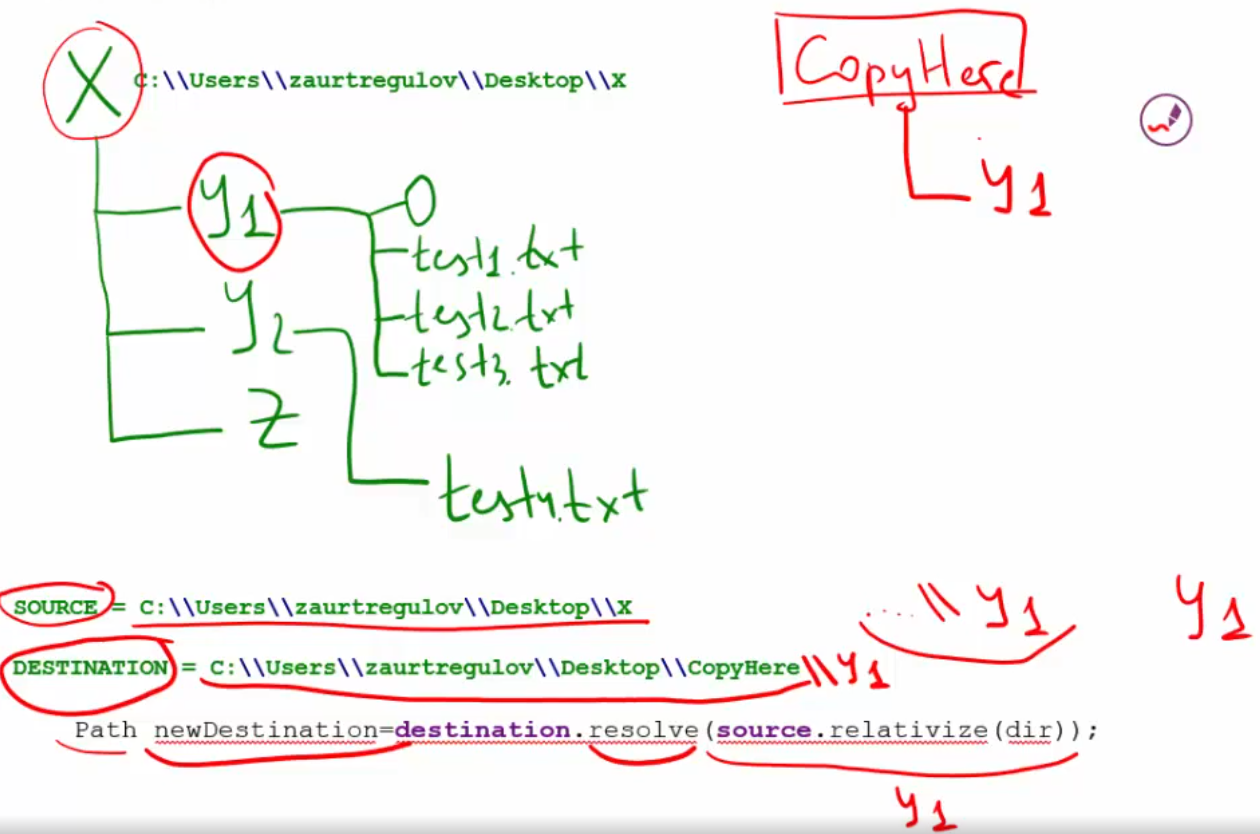 X C:\\Users\\zaurtregulov\\Desktop\\X
CopyHere
y1
y1
O
test1.txt
test2.txt
test3.txt
y2
z
test4.txt
SOURCE = C:\\Users\\zaurtregulov\\Desktop\\X
....\\y1
y1
DESTINATION = C:\\Users\\zaurtregulov\\Desktop\\CopyHere\\y1
Path newDestination=destination.resolve(source.relativize(dir));
y1